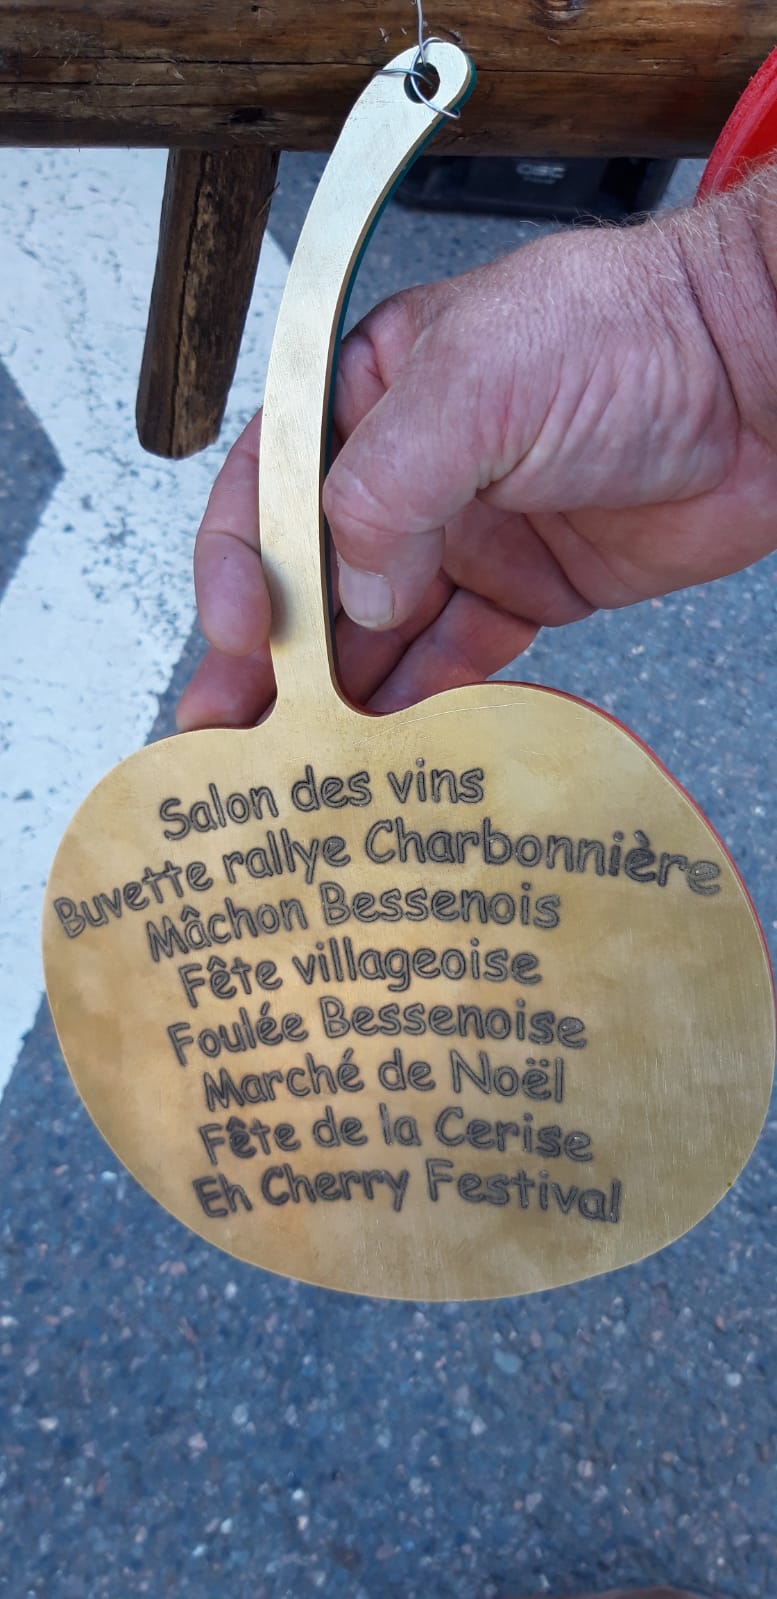 Salon des vins
Buvette rallye Charbonnière
Mâchon Bessenois
Fête villageoise
Foulée Bessenoise
Marché de Noël
Fête de la Cerise
Eh Cherry Festival